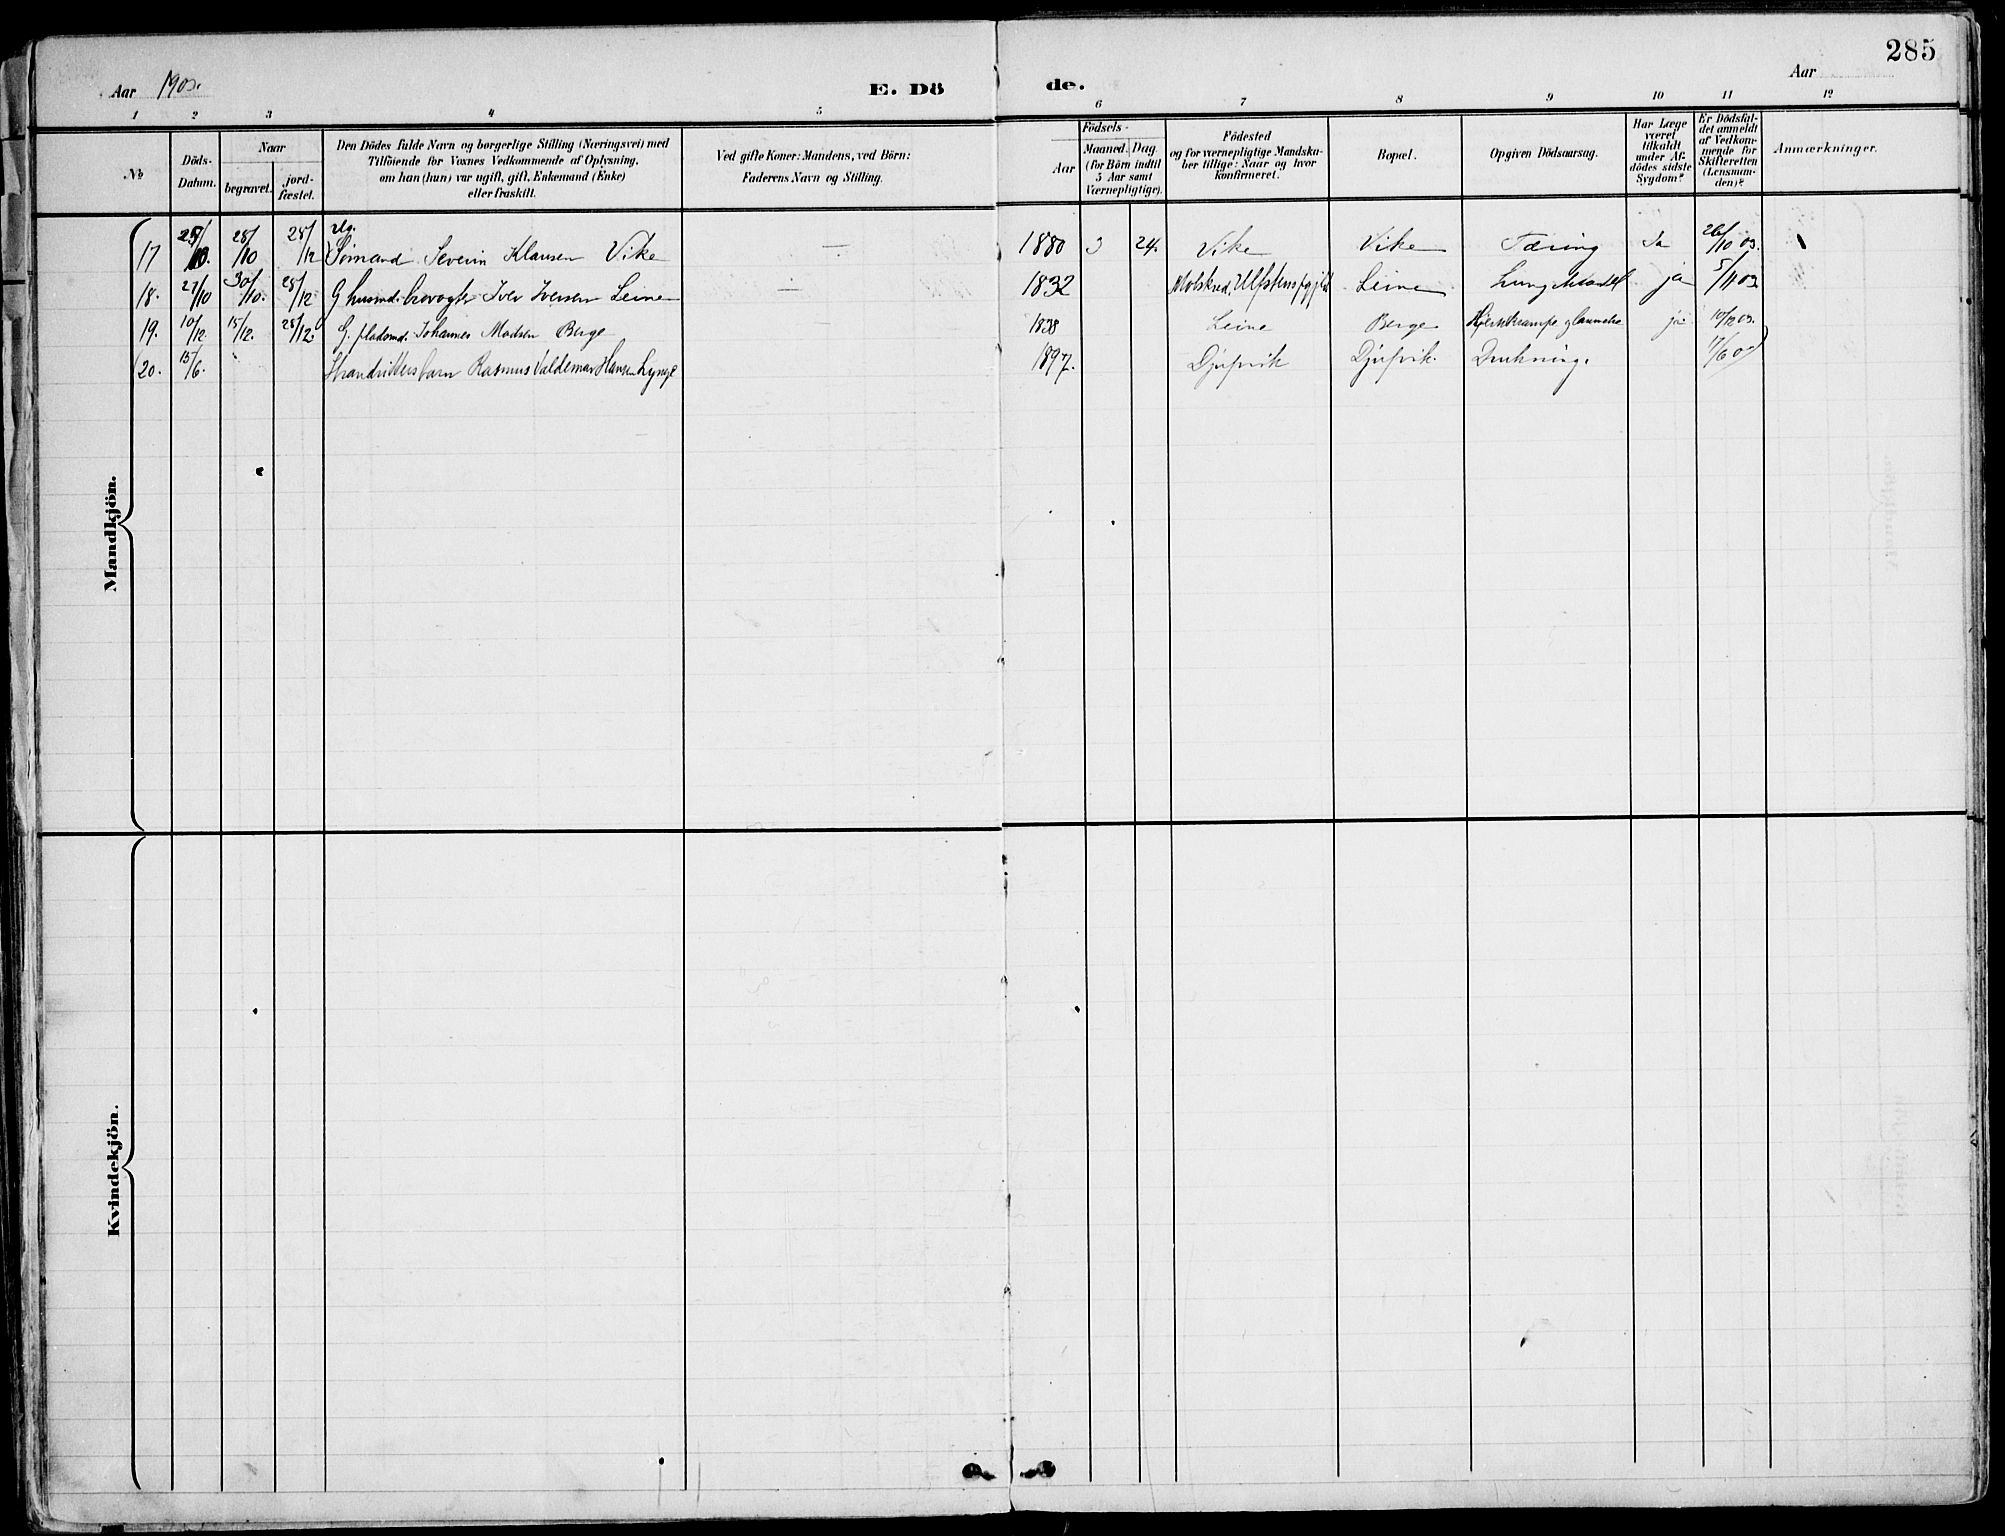 285
Aar 1903.
E. Döde.
Aar
1 2 3 4 5 6 7 8 9 10 11 12
No
Döds-Datum.
Naar
begravet.
jord-fæstet.
Den Dödes fulde Navn og borgerlige Stilling (Næringsvei) med
Tilföiende for Voxnes Vedkommende af Oplysning,
om han (hun) var ugift, gift, Enkemand (Enke)
eller fraskilt.
Ved gifte Koner: Mandens, ved Börn:
Faderens Navn og Stilling.
Födsels-
Aar
Maaned. Dag.
(for Börn indtil
5 Aar samt
Værnepligtige).
Födested
og for værnepligtige Mandska-
ber tillige: Naar og hvor
konfirmeret.
Bopæl.
Opgiven Dödsaarsag.
Har Læge
været
tilkaldt
under Af-
dödes sidste
Sygdom?
Er Dödsfal-
det anmeldt
af Vedkom-
mende for
Skifteretten
(Lensman-
den)?
Anmærkninger.
Mandkjön.
17 25/10. 28/10 28/12 Ug. Sømand Severin Klausen Vike — 1880 3 24. Vike Vike Tæring Ja 26/10 03.
18. 27/10 30/10. 28/12 G husmd. brovogter Iver Iversen Leine — 1832 Leine ja 5/11 03
19. 10/12. 15/12. 28/12. G. pladsmd. Johannes Madsen Berge 1838 Leine Berge ja 10/12 03.
20. 15/6. Rasmus Valdemar Hansen Lynge 1897. Djupvik Djupvik. Drukning. 17/6 03
Kvindekjön.